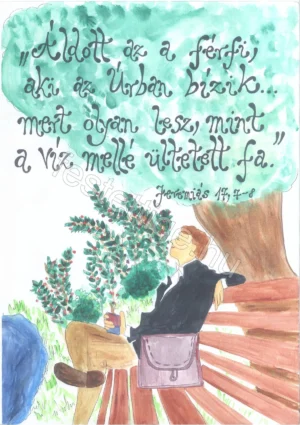 „Áldott az a férfi,
aki az Úrban bízik...
mert olyan lesz, mint
a víz mellé ültetett fa.”
Jeremiás 17, 7-8